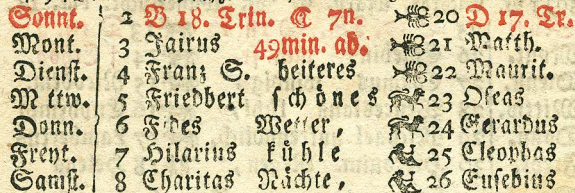 Sonnt. 2 B 18. Trin. ☾ 7n. 20 D 17. Tr.
Mont. 3 Jairus 49min. ab. 21 Matth.
Dienst. 4 Franz S. heiteres 22 Maurit.
M ttw. 5 Friedbert schönes 23 Oseas
Donn. 6 Fides Wetter, 24 Gerardus
Freyt. 7 Hilarius kühle 25 Cleophas
Samst. 8 Charitas Nächte, 26 Eusebius